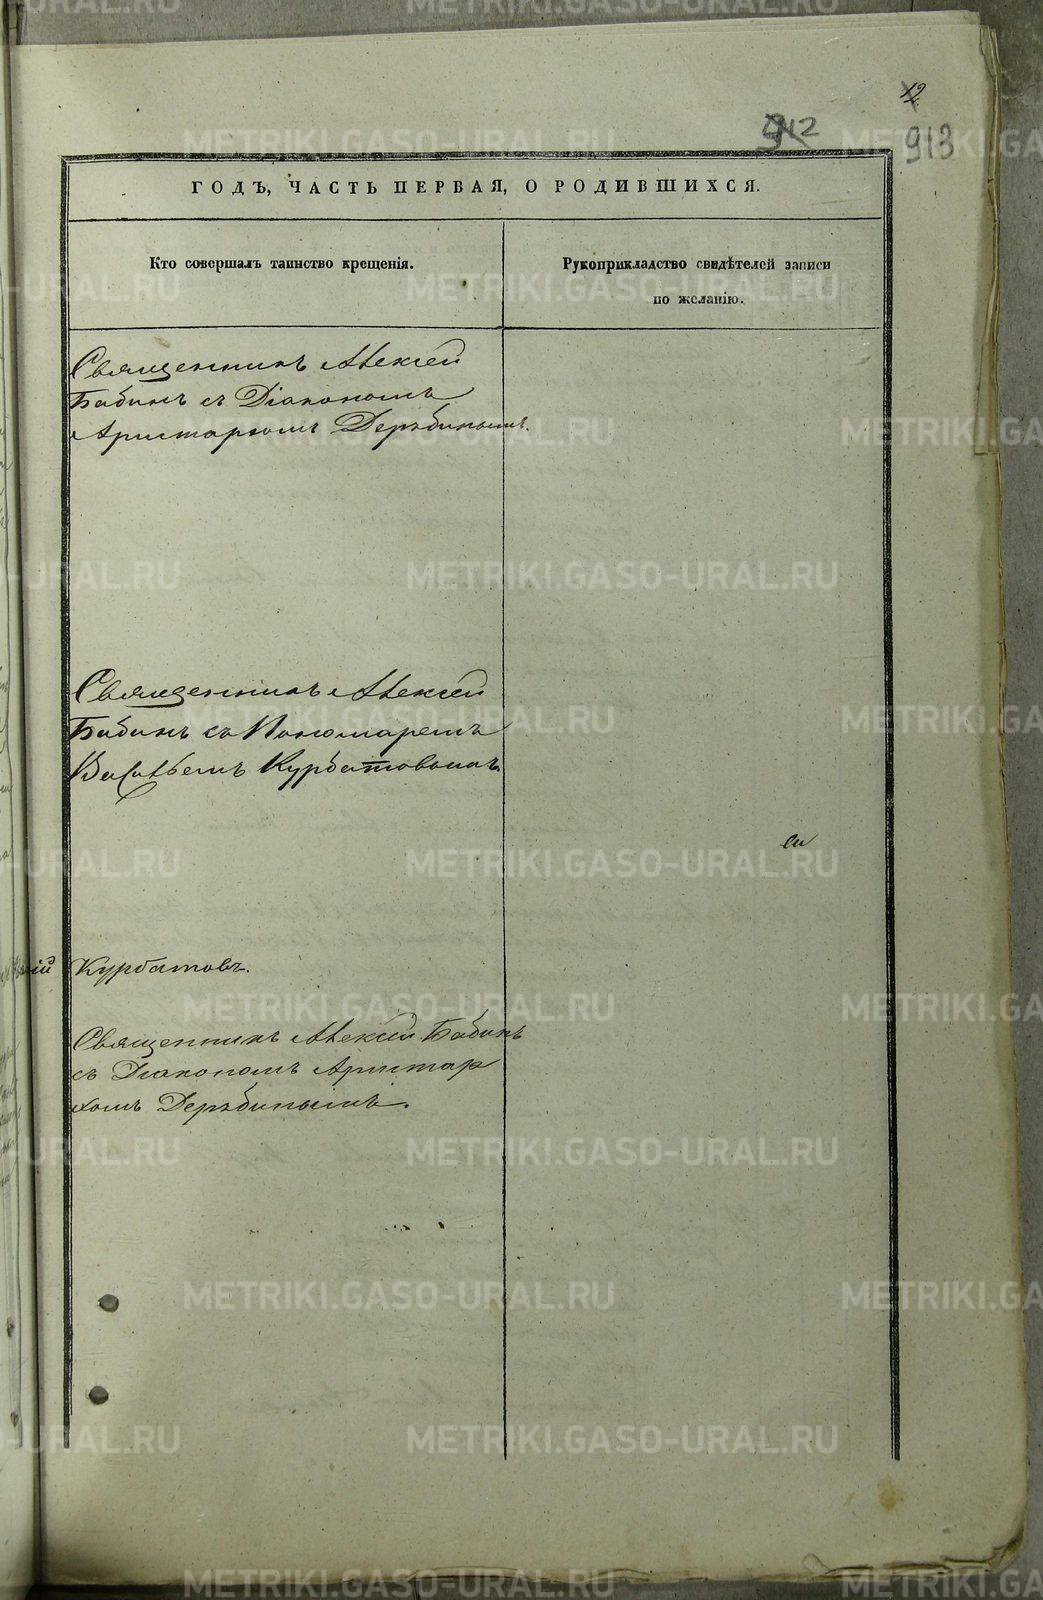 912
913
ГОДЪ, ЧАСТЬ ПЕРВАЯ, О РОДИВШИХСЯ.
Кто совершалъ таинство крещенія.
Рукоприкладство свидѣтелей записи
по желанію.
Священникъ Алексѣй
Бабинъ съ Діакономъ
Аристархомъ Дерябинымъ.
Священникъ Алексѣй
Бабинъ съ Пономаремъ
Васильемъ Курбатовымъ
ій Курбатовъ.
Священникъ Алексѣй Бабинъ
съ Діакономъ Аристар
хомъ Дерябинымъ.
METRIKI.GASO-URAL.RU